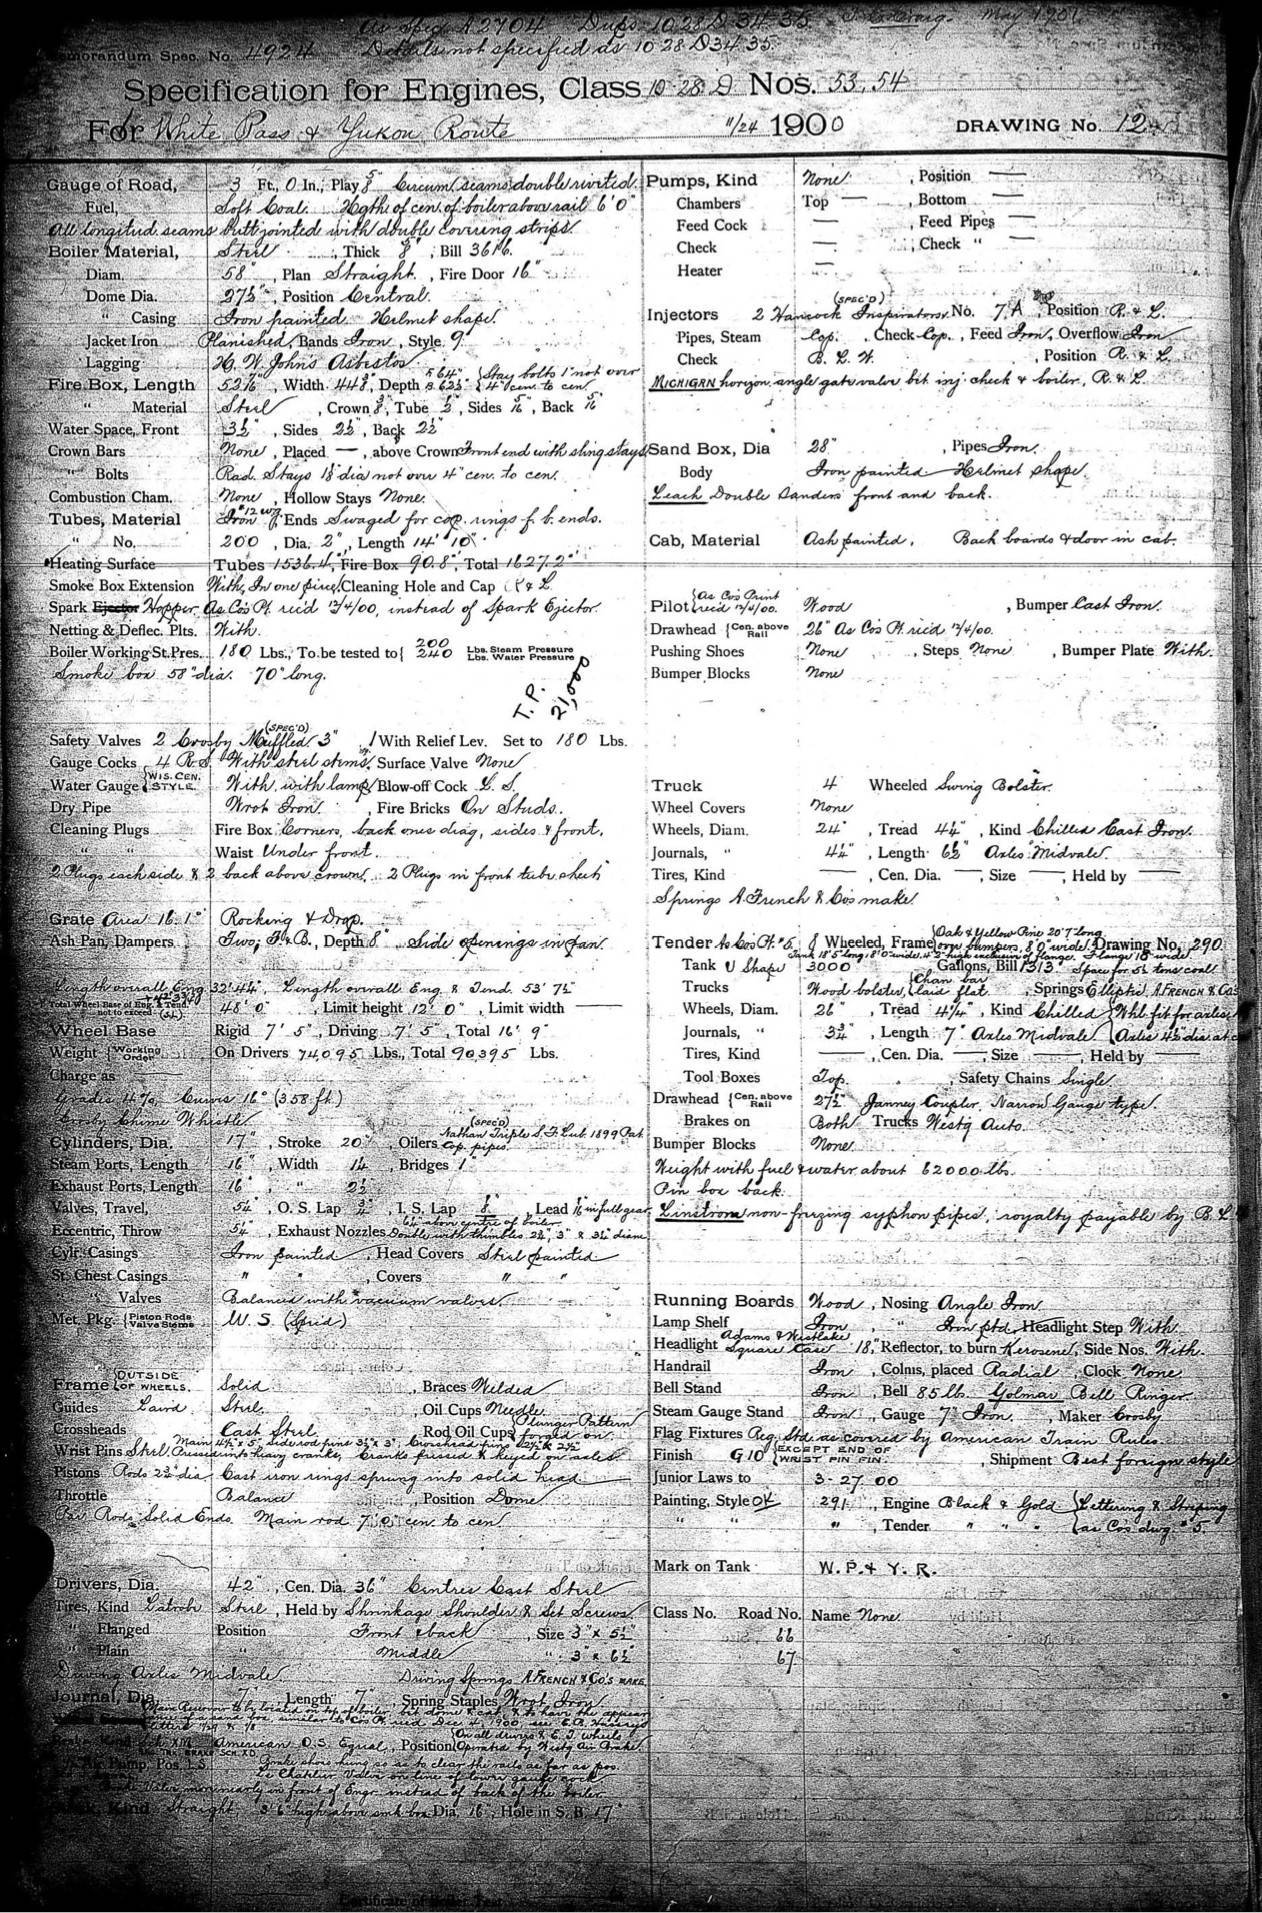 As Spec. A 2704 Dups. 10 28 D 34 35. May 1901.
Memorandum Spec. No. 4924 Details not specified as 10 28 D 34 35.
Specification for Engines, Class 10-28 D Nos. 53, 54
For White Pass & Yukon Route 11/24 1900 DRAWING No. 12
Gauge of Road, 3 Ft., 0 In., Play 5/8" Circum. seams double riveted.
Fuel, Soft Coal. Hgth of cen. of boiler above rail 6' 0"
All longitud. seams butt jointed with double covering strips.
Boiler Material, Steel , Thick 5/8" , Bill 3616.
Diam. 58" , Plan Straight. , Fire Door 16"
Dome Dia. 27½" , Position Central.
" Casing Iron painted. Helmet shape.
Jacket Iron Planished, Bands Iron , Style 9
Lagging H. W. Johns Asbestos
Fire Box, Length 52 " , Width 44 " , Depth F 64" B 62½" { Stay bolts 1" not over 4" cen. to cen.
" Material Steel , Crown 3/8", Tube ½", Sides 5/16", Back 5/16"
Water Space, Front 3½" , Sides 2½", Back 2½"
Crown Bars None , Placed — , above Crown Front end with sling stays
" Bolts Rad. Stays 1 " dia not over 4" cen. to cen.
Combustion Cham. None , Hollow Stays None.
Tubes, Material Iron #12 W.G. , Ends Swaged for cop. rings f. b. ends.
" No. 200 , Dia. 2", Length 14' 10"
Heating Surface Tubes 1536.4, Fire Box 90.8, Total 1627.2
Smoke Box Extension With, In one piece, Cleaning Hole and Cap R & L.
Spark Ejector Hopper. As Co's Pt. rec'd 12/4/00, instead of Spark Ejector.
Netting & Deflec. Plts. With.
Boiler Working St. Pres. 180 Lbs., To be tested to { 200 Lbs. Steam Pressure 240 Lbs. Water Pressure
Smoke box 58" dia. 70" long.
T. P. 21,000
Safety Valves 2 Crosby Muffled (SPEC'D) 3" , 1 With Relief Lev. Set to 180 Lbs.
Gauge Cocks 4 R. S. With steel stems , Surface Valve None
Water Gauge { WIS. CEN. STYLE. With, with lamp , Blow-off Cock L. S.
Dry Pipe Wrot Iron , Fire Bricks On Studs.
Cleaning Plugs Fire Box Corners, back ones diag, sides & front.
" " Waist Under front.
2 Plugs each side & 2 back above crown. 2 Plugs in front tube sheet
Grate Area 16.1 Rocking & Drop.
Ash Pan, Dampers Two; F. & B., Depth 8" Side openings in pan.
Length overall Eng. 32' 4¾", Length overall Eng. & Tend. 53' 7½"
Total Wheel Base of Eng. & Tend. not to exceed 48' 0" , Limit height 12' 0" , Limit width —
Wheel Base Rigid 7' 5", Driving 7' 5", Total 16' 9"
Weight { Working Order On Drivers 74,095 Lbs., Total 90395 Lbs.
Charge as —
Grades 4%, Curves 16° (358 ft.)
Crosby Chime Whistle
Cylinders, Dia. 17" , Stroke 20" , Oilers (SPEC'D) Nathan Triple S. F. Lub. 1899 Pat. Cop. pipes.
Steam Ports, Length 16" , Width 1¼ , Bridges 1"
Exhaust Ports, Length 16" , " 2½
Valves, Travel, 5¼" , O. S. Lap ", I. S. Lap 1/8" , Lead 1/16 in full gear
Eccentric, Throw 5¼" , Exhaust Nozzles 6¼ above centre of boiler. Double with thimbles 2¾", 3" & 3¼" diam.
Cylr. Casings Iron painted , Head Covers Steel painted
St. Chest Casings " " , Covers " "
" " Valves Balanced with vacuum valves.
Met. Pkg. { Piston Rods Valve Stems U. S. (Spec'd)
Frame { OUTSIDE OF WHEELS. Solid , Braces Welded
Guides Laird Steel , Oil Cups Needle
Crossheads Cast Steel Rod Oil Cups { Plunger Pattern forged on.
Wrist Pins Steel, Main 4½" x 5" side rod pins 3½" x 3". Crosshead pins 2½" x 2½" Pressed into heavy cranks, Cranks pressed & keyed on axles
Pistons Rods 2¾" dia. Cast iron rings sprung into solid head
Throttle Balance , Position Dome
Par. Rods Solid Ends. Main rod 7' 0" cen. to cen.
Drivers, Dia. 42" , Cen. Dia. 36" Centres Cast Steel
Tires, Kind Latrobe Steel , Held by Shrinkage Shoulder & Set Screws
" Flanged Position Front & back , Size 3" x 5½"
" Plain " Middle " 3" x 6½"
Driving Axles Midvale Driving Springs A. FRENCH & CO'S MAKE
Journal, Dia. 7" , Length 7" , Spring Staples Wrot Iron
Main Reservoir to be located on top of boiler, bet. dome & cab, & to have the appearance of a sand box, similar to Co's Pt. rec'd Dec. 4, 1900, see
American O.S. Equal., Position { On all drivers & E. T. wheels Operated by Westg Air Brake
Air Pump, Pos. L.S. Brake shoes hung so as to clear the rails as far as pos.
Le Chatelier Valve on line of lower gauge cock
more nearly in front of Engr instead of back of the boiler
Stack, Kind Straight, 3' 6" high above smk. box Dia. 16", Hole in S. B. 17"
Pumps, Kind None , Position —
Chambers Top — , Bottom —
Feed Cock — , Feed Pipes —
Check — , Check " —
Heater —
Injectors 2 Hancock Inspirators (SPEC'D) No. 7 A , Position R. & L.
Pipes, Steam Cop. , Check Cop. , Feed Iron, Overflow Iron
Check B. L. W. , Position R. & L.
MICHIGAN horizon. angle gate valve bet. inj. check & boiler, R. & L.
Sand Box, Dia 28" , Pipes Iron.
Body Iron painted Helmet shape.
Leach Double Sanders front and back.
Cab, Material Ash painted, Back boards & door in cab.
Pilot { As Co's Print rec'd 12/4/00. Wood , Bumper Cast Iron.
Drawhead { Cen. above Rail 26" As Co's Pt. rec'd 12/4/00.
Pushing Shoes None , Steps None , Bumper Plate With.
Bumper Blocks None
Truck 4 Wheeled Swing Bolster.
Wheel Covers None
Wheels, Diam. 24" , Tread 4¼" , Kind Chilled Cast Iron.
Journals, " 4¼" , Length 6½" Axles Midvale.
Tires, Kind — , Cen. Dia. — , Size — , Held by —
Springs A. French & Co's make.
Tender As Co's Pt. #5 8 Wheeled, Frame { Oak & Yellow Pine 20' 7" long over bumpers, 8' 0" wide. Drawing No. 290
Tank 18' 5" long, 8' 0" wide, 4' 2" high exclusive of flange. Flange 18" wide
Tank U Shape 3000 Gallons, Bill 1313 Space for 5½ tons coal
Trucks Wood bolster, { Chan. bar laid flat , Springs Elliptic A. FRENCH & CO'S
Wheels, Diam. 26" , Tread 4¼" , Kind Chilled { Whl. fit for axles
Journals, " 3¾" , Length 7" Axles Midvale { Axles 4½ dia. at c
Tires, Kind — , Cen. Dia. — , Size — , Held by —
Tool Boxes Top , Safety Chains Single
Drawhead { Cen. above Rail 27½" Janney Coupler Narrow Gauge type.
Brakes on Both Trucks Westg. Auto.
Bumper Blocks None
Weight with fuel & water about 62000 lbs.
Pin box back.
Linstrom non-freezing syphon pipes, royalty payable by B. L.
Running Boards Wood , Nosing Angle Iron
Lamp Shelf Iron " Iron ptd. Headlight Step With
Headlight Adams & Westlake Square Case 18," Reflector, to burn Kerosene, Side Nos. With.
Handrail Iron , Colmns, placed Radial , Clock None
Bell Stand Iron , Bell 85 lb. Golmar Bell Ringer
Steam Gauge Stand Iron , Gauge 7" Iron , Maker Crosby
Flag Fixtures Reg. Std. as covered by American Train Rules
Finish G 10 { EXCEPT END OF WRIST PIN FIN. , Shipment Best foreign style
Junior Laws to 3-27 00
Painting, Style OK 291 , Engine Black & Gold { Lettering & Striping
" " " , Tender " " " { as Co's dwg. #5.
Mark on Tank W. P. & Y. R.
Class No. Road No. Name None
66
67